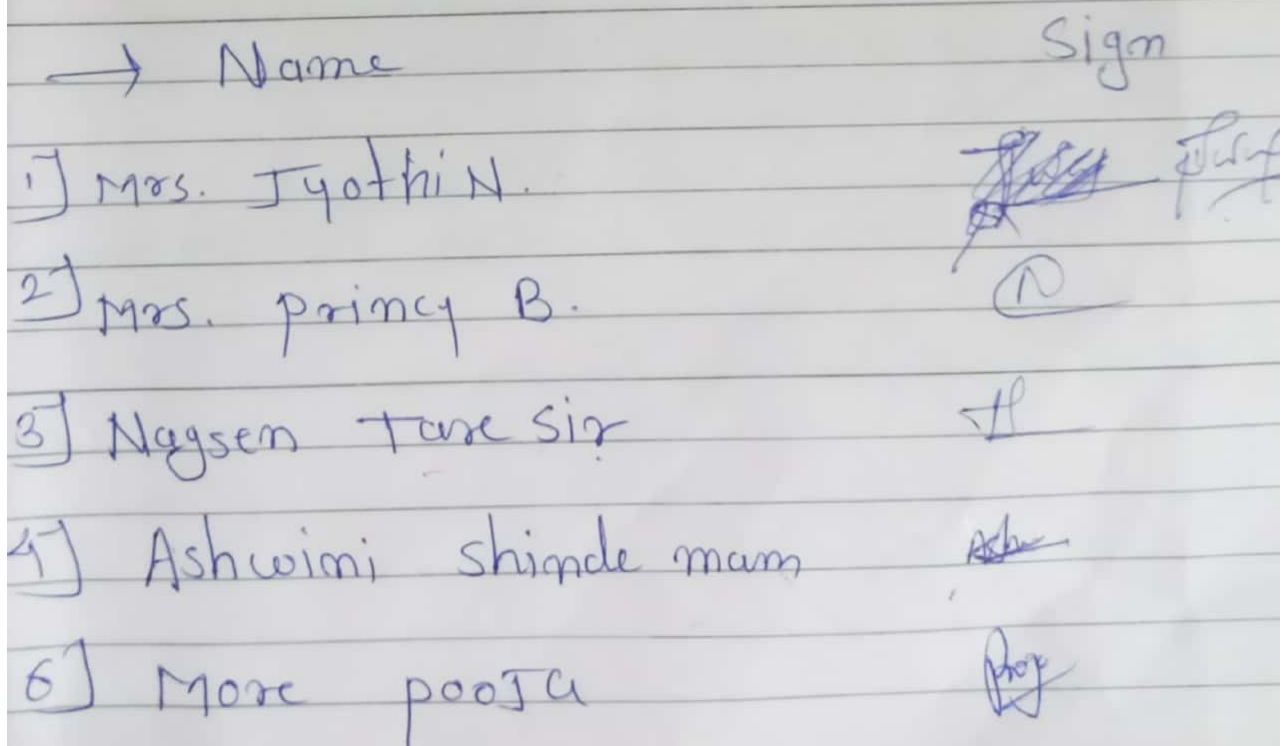 → Name Sign
1] Mrs. Jyothi N.
2] Mrs. princy B.
3] Nagsen Tare Sir
4] Ashwini shinde mam
6] More pooJa